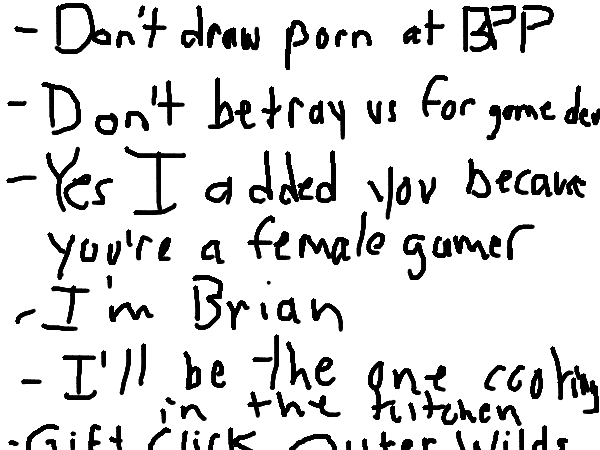 - Don't draw porn at BPP
- Don't betray us for game dev
- Yes I added you because
you're a female gamer
- I'm Brian
- I'll be the one cooking
in the kitchen
- Gift Click Outer Wilds